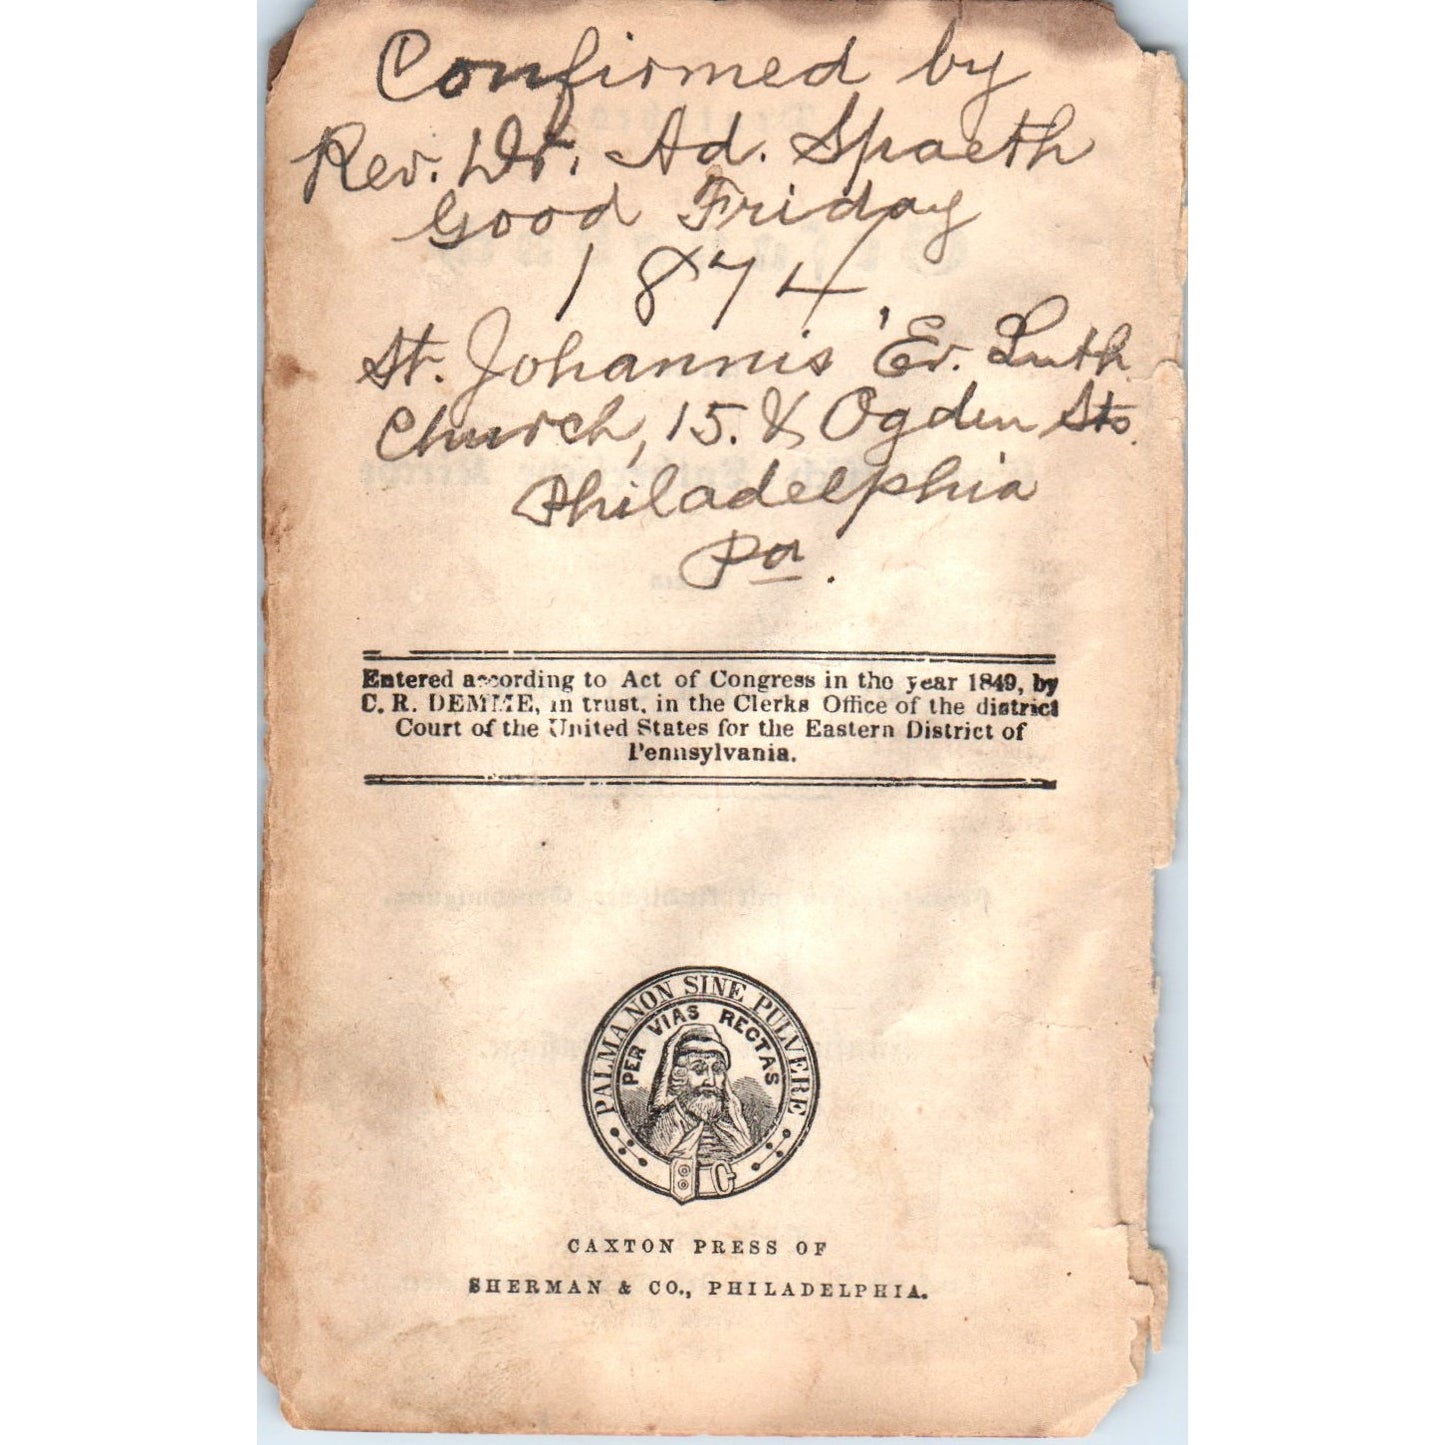 Confirmed by
Rev. Dr. Ad. Spaeth
Good Friday
1874
St. Johannis' Ev. Luth.
Church, 15. & Ogden Sts.
Philadelphia
Pa.
Entered according to Act of Congress in the year 1849, by
C. R. DEMME, in trust, in the Clerks Office of the district
Court of the United States for the Eastern District of
Pennsylvania.
PALMA NON SINE PULVERE
PER VIAS RECTAS
CAXTON PRESS OF
SHERMAN & CO., PHILADELPHIA.